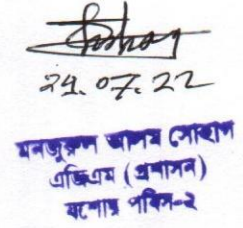 29.07.22
মনজুরুল আলম সোহাগ
এজিএম (প্রশাসন)
যশোর পবিস-২